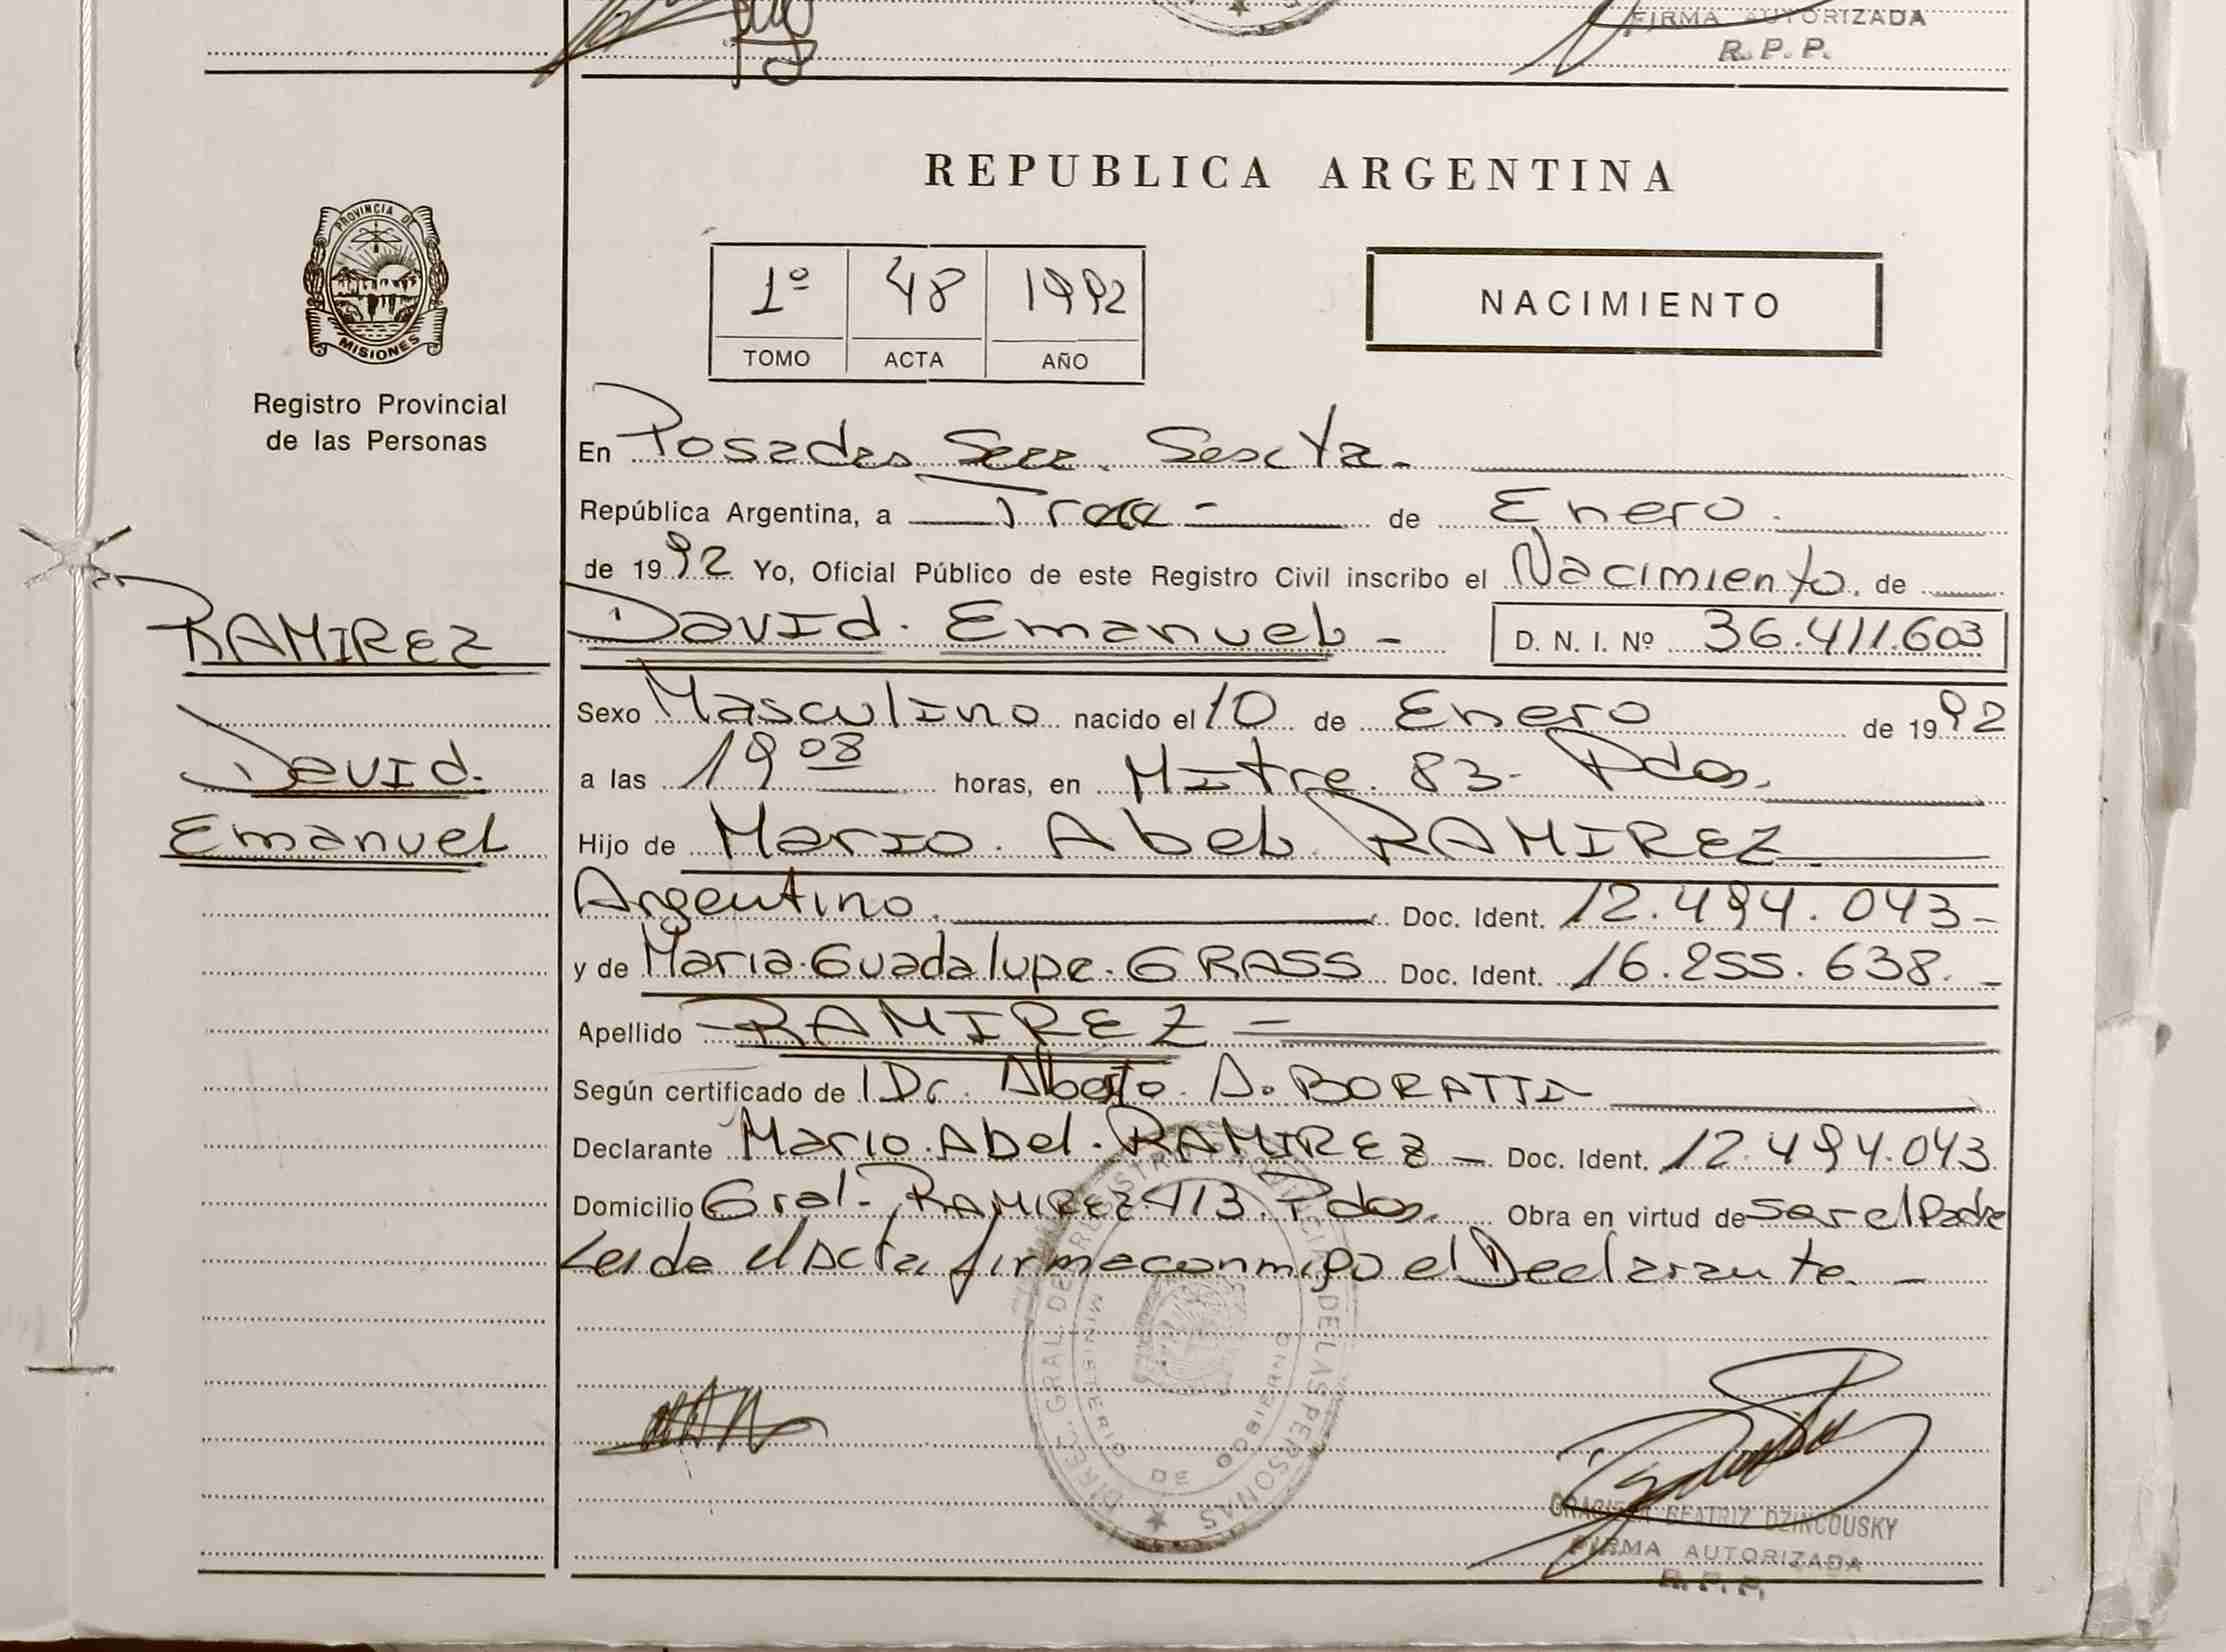 FIRMA AUTORIZADA
R. P. P.
REPUBLICA ARGENTINA
PROVINCIA DE
MISIONES
Registro Provincial
de las Personas
1º 48 1992
TOMO ACTA AÑO
NACIMIENTO
En Posadas Secc. Sexta.
República Argentina, a Trece - de Enero.
de 1992 Yo, Oficial Público de este Registro Civil inscribo el Nacimiento. de
David. Emanuel - D. N. I. Nº 36.411.603
RAMIREZ
David.
Emanuel
Sexo Masculino nacido el 10 de Enero de 1992
a las 19 08 horas, en Mitre. 83- Pdas.
Hijo de Mario. Abel. RAMIREZ
Argentino. Doc. Ident. 12.494.043-
y de Maria Guadalupe. GRASS Doc. Ident. 16.255.638.-
Apellido - RAMIREZ -
Según certificado de Dr. Alberto. A. BORATTI
Declarante Mario. Abel. RAMIREZ - Doc. Ident. 12.494.043
Domicilio Gral. RAMIREZ 413. Pdas. Obra en virtud de ser el Padre
Leida el Acta firma conmigo el Declarante. -
DIREC. GRAL. DEL REGISTRO PROVINCIAL DE LAS PERSONAS
MINISTERIO DE GOBIERNO
GRACIELA BEATRIZ DZINCOUSKY
FIRMA AUTORIZADA
R. P. P.